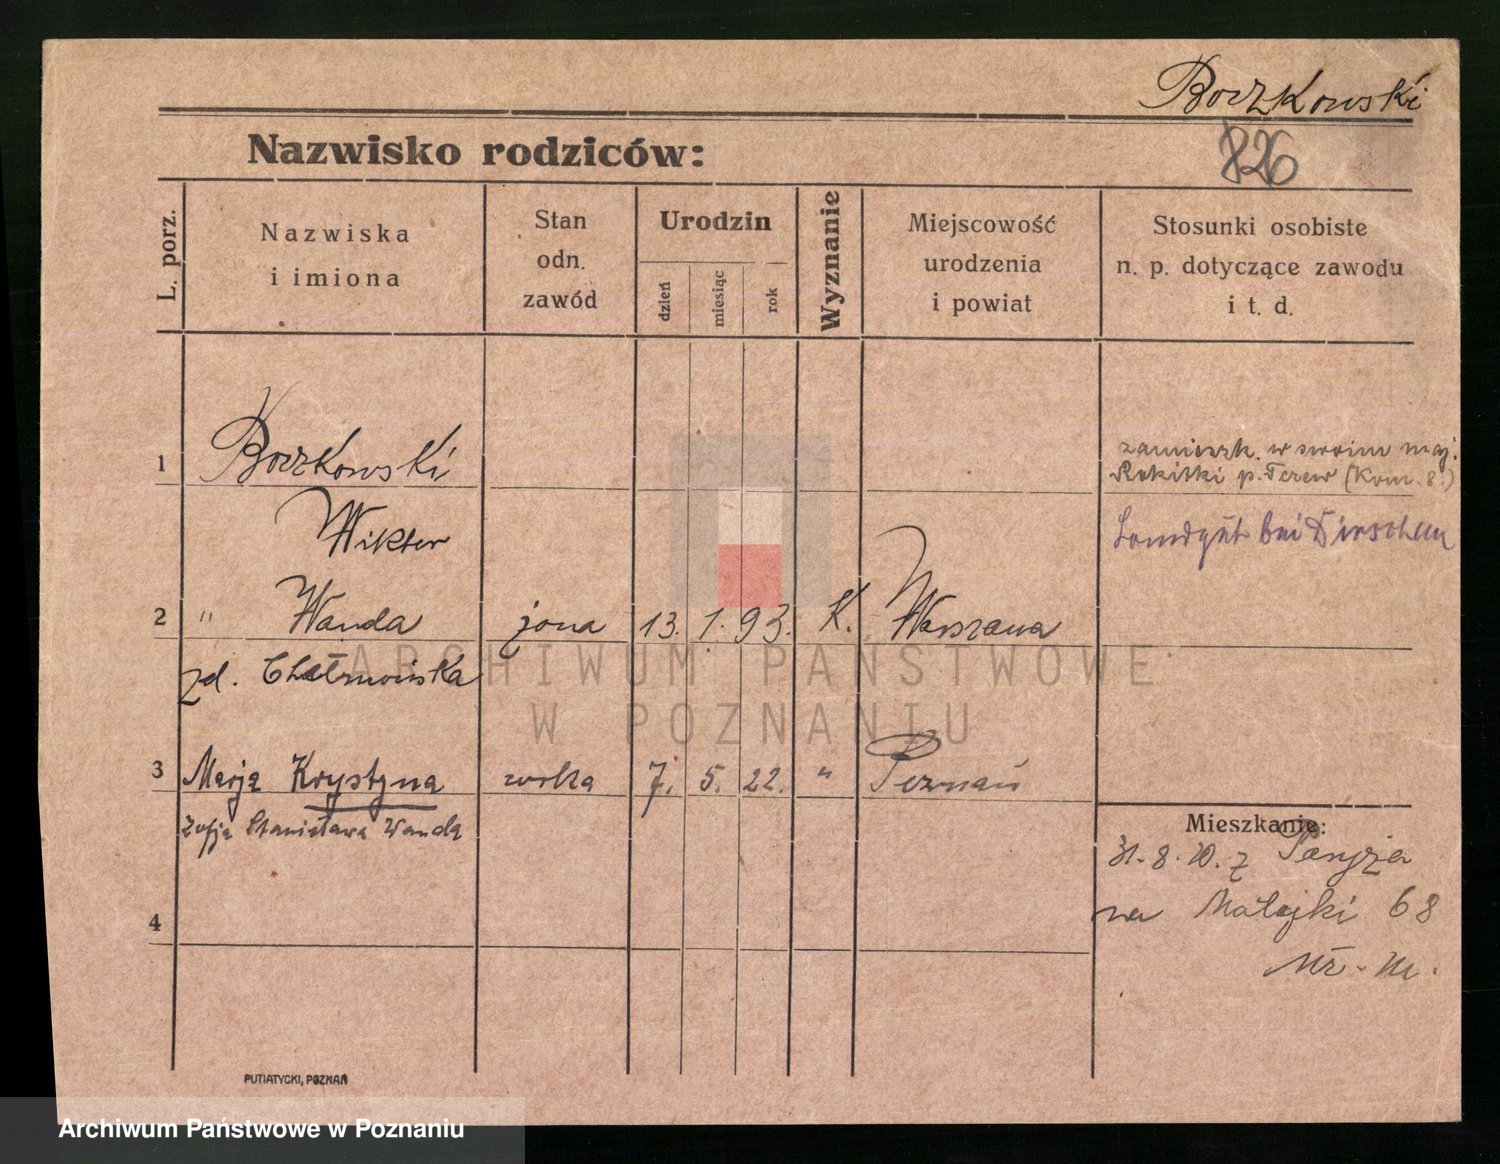 Boczkowski
826
Nazwisko rodziców:
L. porz.
Nazwiska
i imiona
Stan
odn.
zawód
Urodzin
dzień
miesiąc
rok
Wyznanie
Miejscowość
urodzenia
i powiat
Stosunki osobiste
n. p. dotyczące zawodu
i t. d.
1 Boczkowski
Wiktor
zamieszk. w swoim maj.
Rokitki p. Tczew (Kom. 8.)
Landgut bei Dirschau
2 " Wanda żona 13. 1. 93. K. Warszawa
zd.
3 Marja Krystyna córka 7. 5. 22. " Poznań
Zofja Stanisława Wanda
4
Mieszkanie:
31.8.20. z Paryża
na Matejki 68
PUTIATYCKI, POZNAŃ
ARCHIWUM PAŃSTWOWE
W POZNANIU
Archiwum Państwowe w Poznaniu